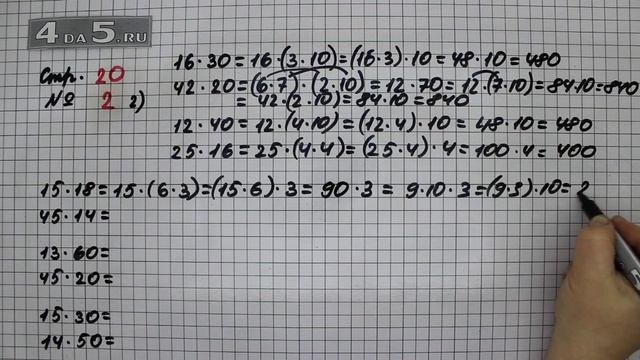 4DA5.RU
Стр. 20
№ 2 2)
16·30=16·(3·10)=(16·3)·10=48·10=480
42·20=(6·7)·(2·10)=12·70=12·(7·10)=84·10=840
=42·(2·10)=84·10=840
12·40=12·(4·10)=(12·4)·10=48·10=480
25·16=25·(4·4)=(25·4)·4=100·4=400
15·18=15·(6·3)=(15·6)·3=90·3=9·10·3=(9·3)·10=2
45·14=
13·60=
45·20=
15·30=
14·50=